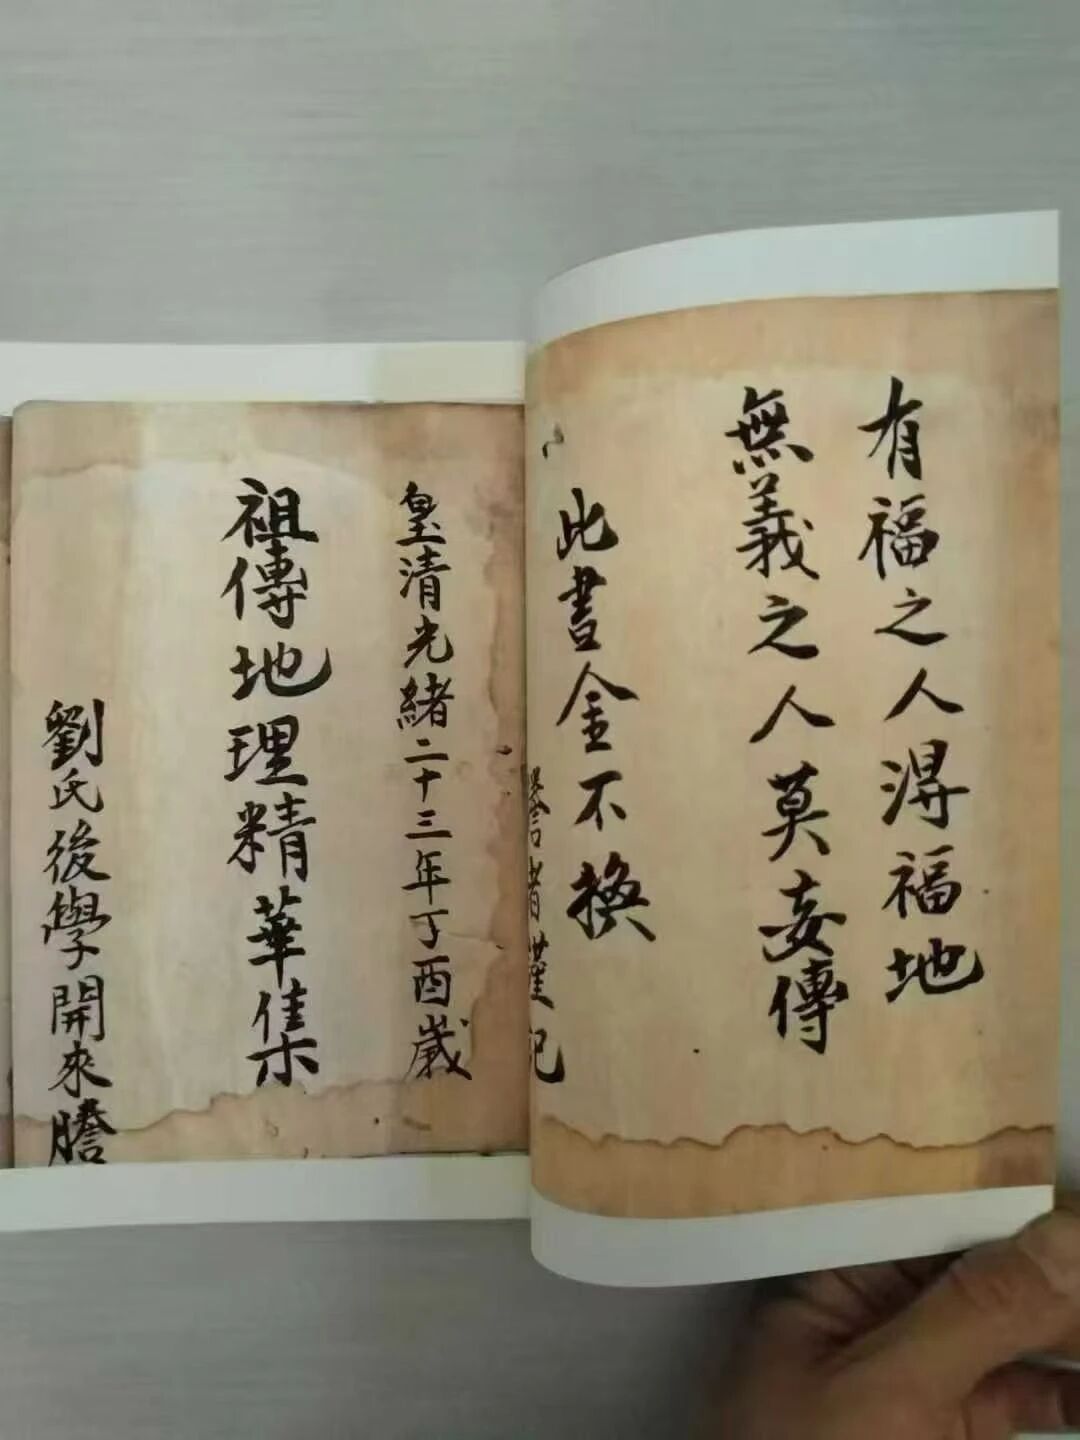 有福之人得福地
無義之人莫妄傳
此書金不換
謄者謹記
皇清光緒二十三年丁酉歲
祖傳地理精華集
劉氏後學開來謄